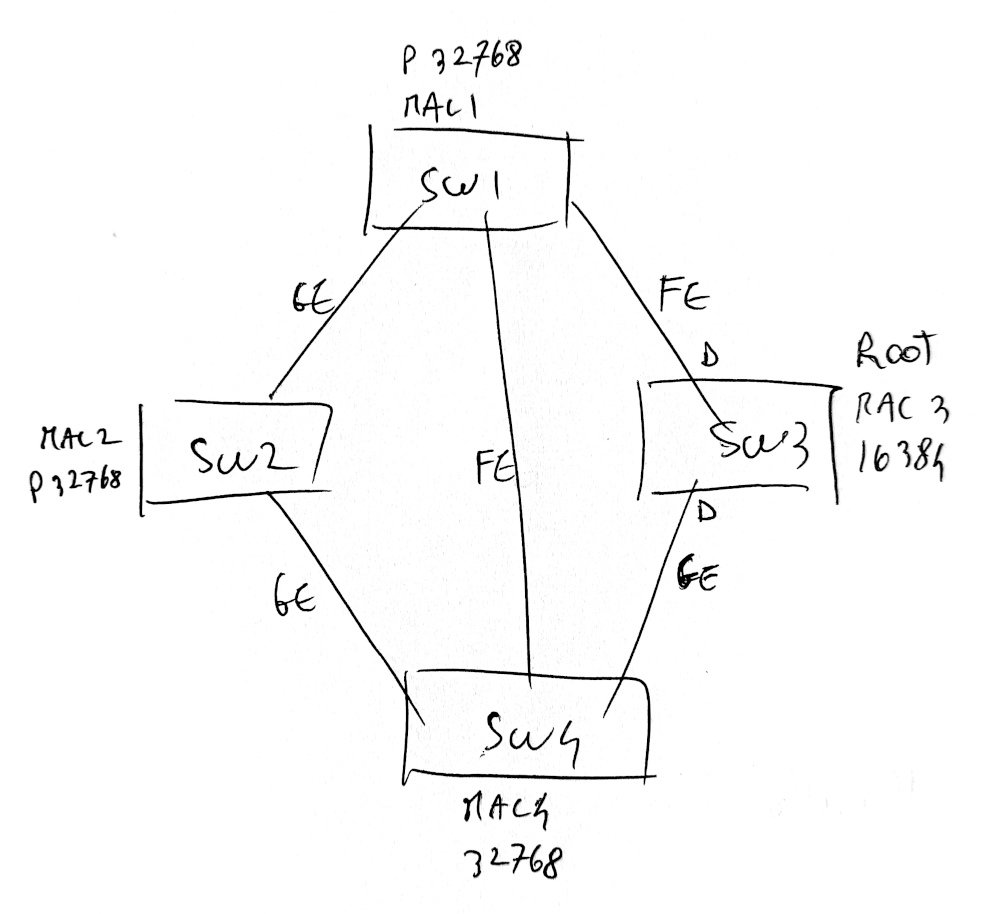 P 32768
MAC1
SW1
GE
FE
D
Root
MAC 3
16384
MAC2
P 32768
SW2
FE
SW3
D
GE
GE
SW4
MAC4
32768